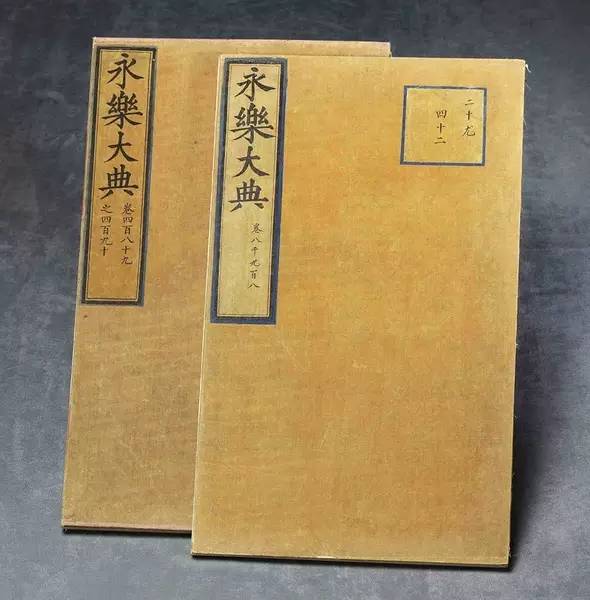 永樂大典
卷四百八十九
之四百九十
永樂大典
卷八千九百八
二十尤
四十二